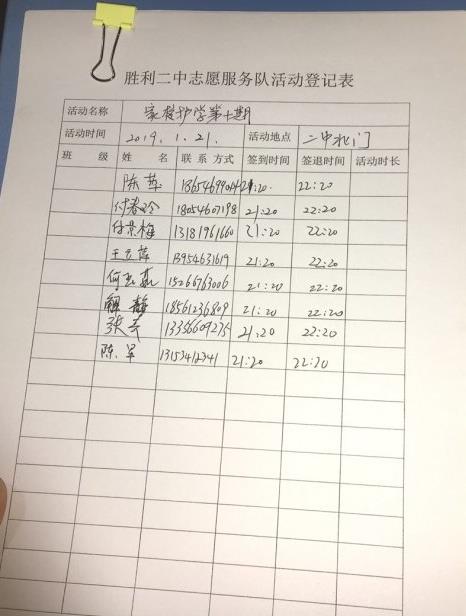 胜利二中志愿服务队活动登记表
活动名称 家校护学第十期
活动时间 2019.1.21. 活动地点 二中北门
班 级 姓 名 联系方式 签到时间 签退时间 活动时长
陈萍 21:20. 22:20
付春玲 18054607198 21:20 22:20
付景梅 13181961660 21:20 22:20
13954631619 21:20 22:20
15266763006 21:20 22:20
解静 18561236809 21:20 22:20
13356609275 21:20 22:20
陈军 13153412341 21:20 22:20